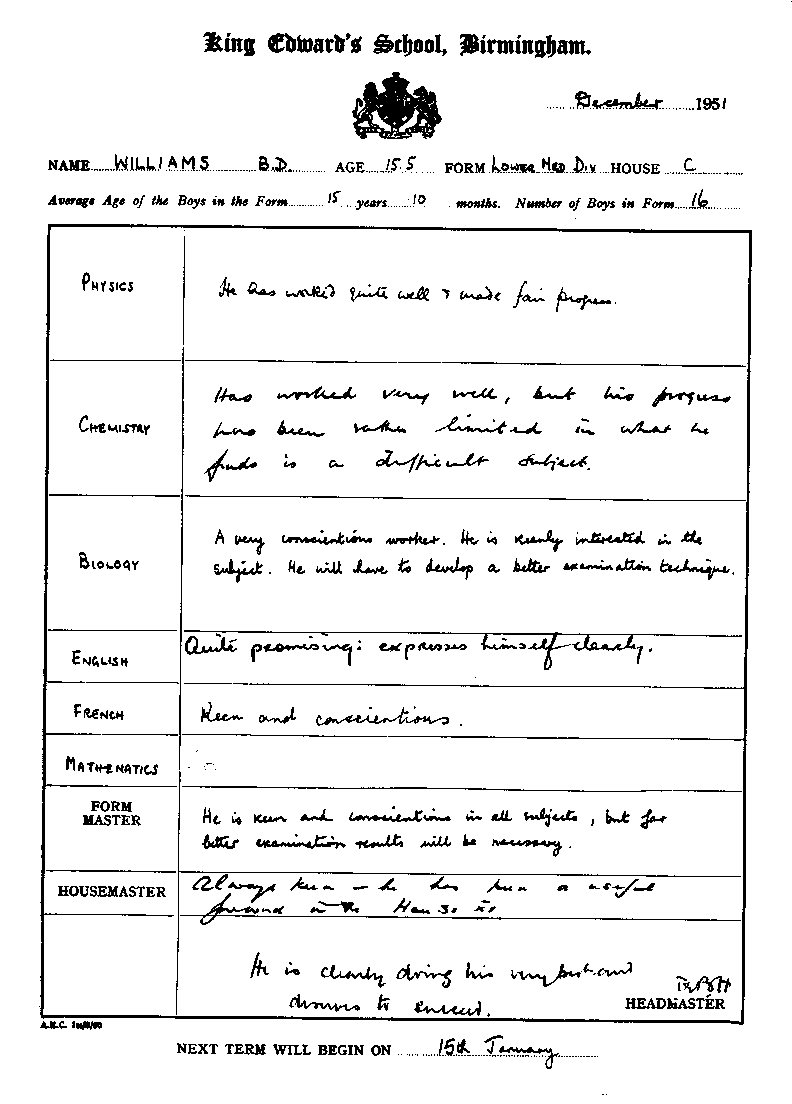 King Edward's School, Birmingham.
December 1951
NAME WILLIAMS B.D. AGE 15.5 FORM LOWER MED DIV HOUSE C
Average Age of the Boys in the Form 15 years 10 months. Number of Boys in Form 16
PHYSICS
He has worked quite well & made fair progress.
CHEMISTRY
Has worked very well, but his progress
has been rather limited in what he
finds is a difficult subject.
BIOLOGY
A very conscientious worker. He is keenly interested in the
subject. He will have to develop a better examination technique.
ENGLISH
Quite promising: expresses himself clearly.
FRENCH
Keen and conscientious.
MATHEMATICS
FORM
MASTER
He is keen and conscientious in all subjects, but far
better examination results will be necessary.
HOUSEMASTER
Always keen – he has been a useful
forward in the House XV
He is clearly doing his very best and
deserves to succeed.
HEADMASTER
A.E.C.
NEXT TERM WILL BEGIN ON 15th January